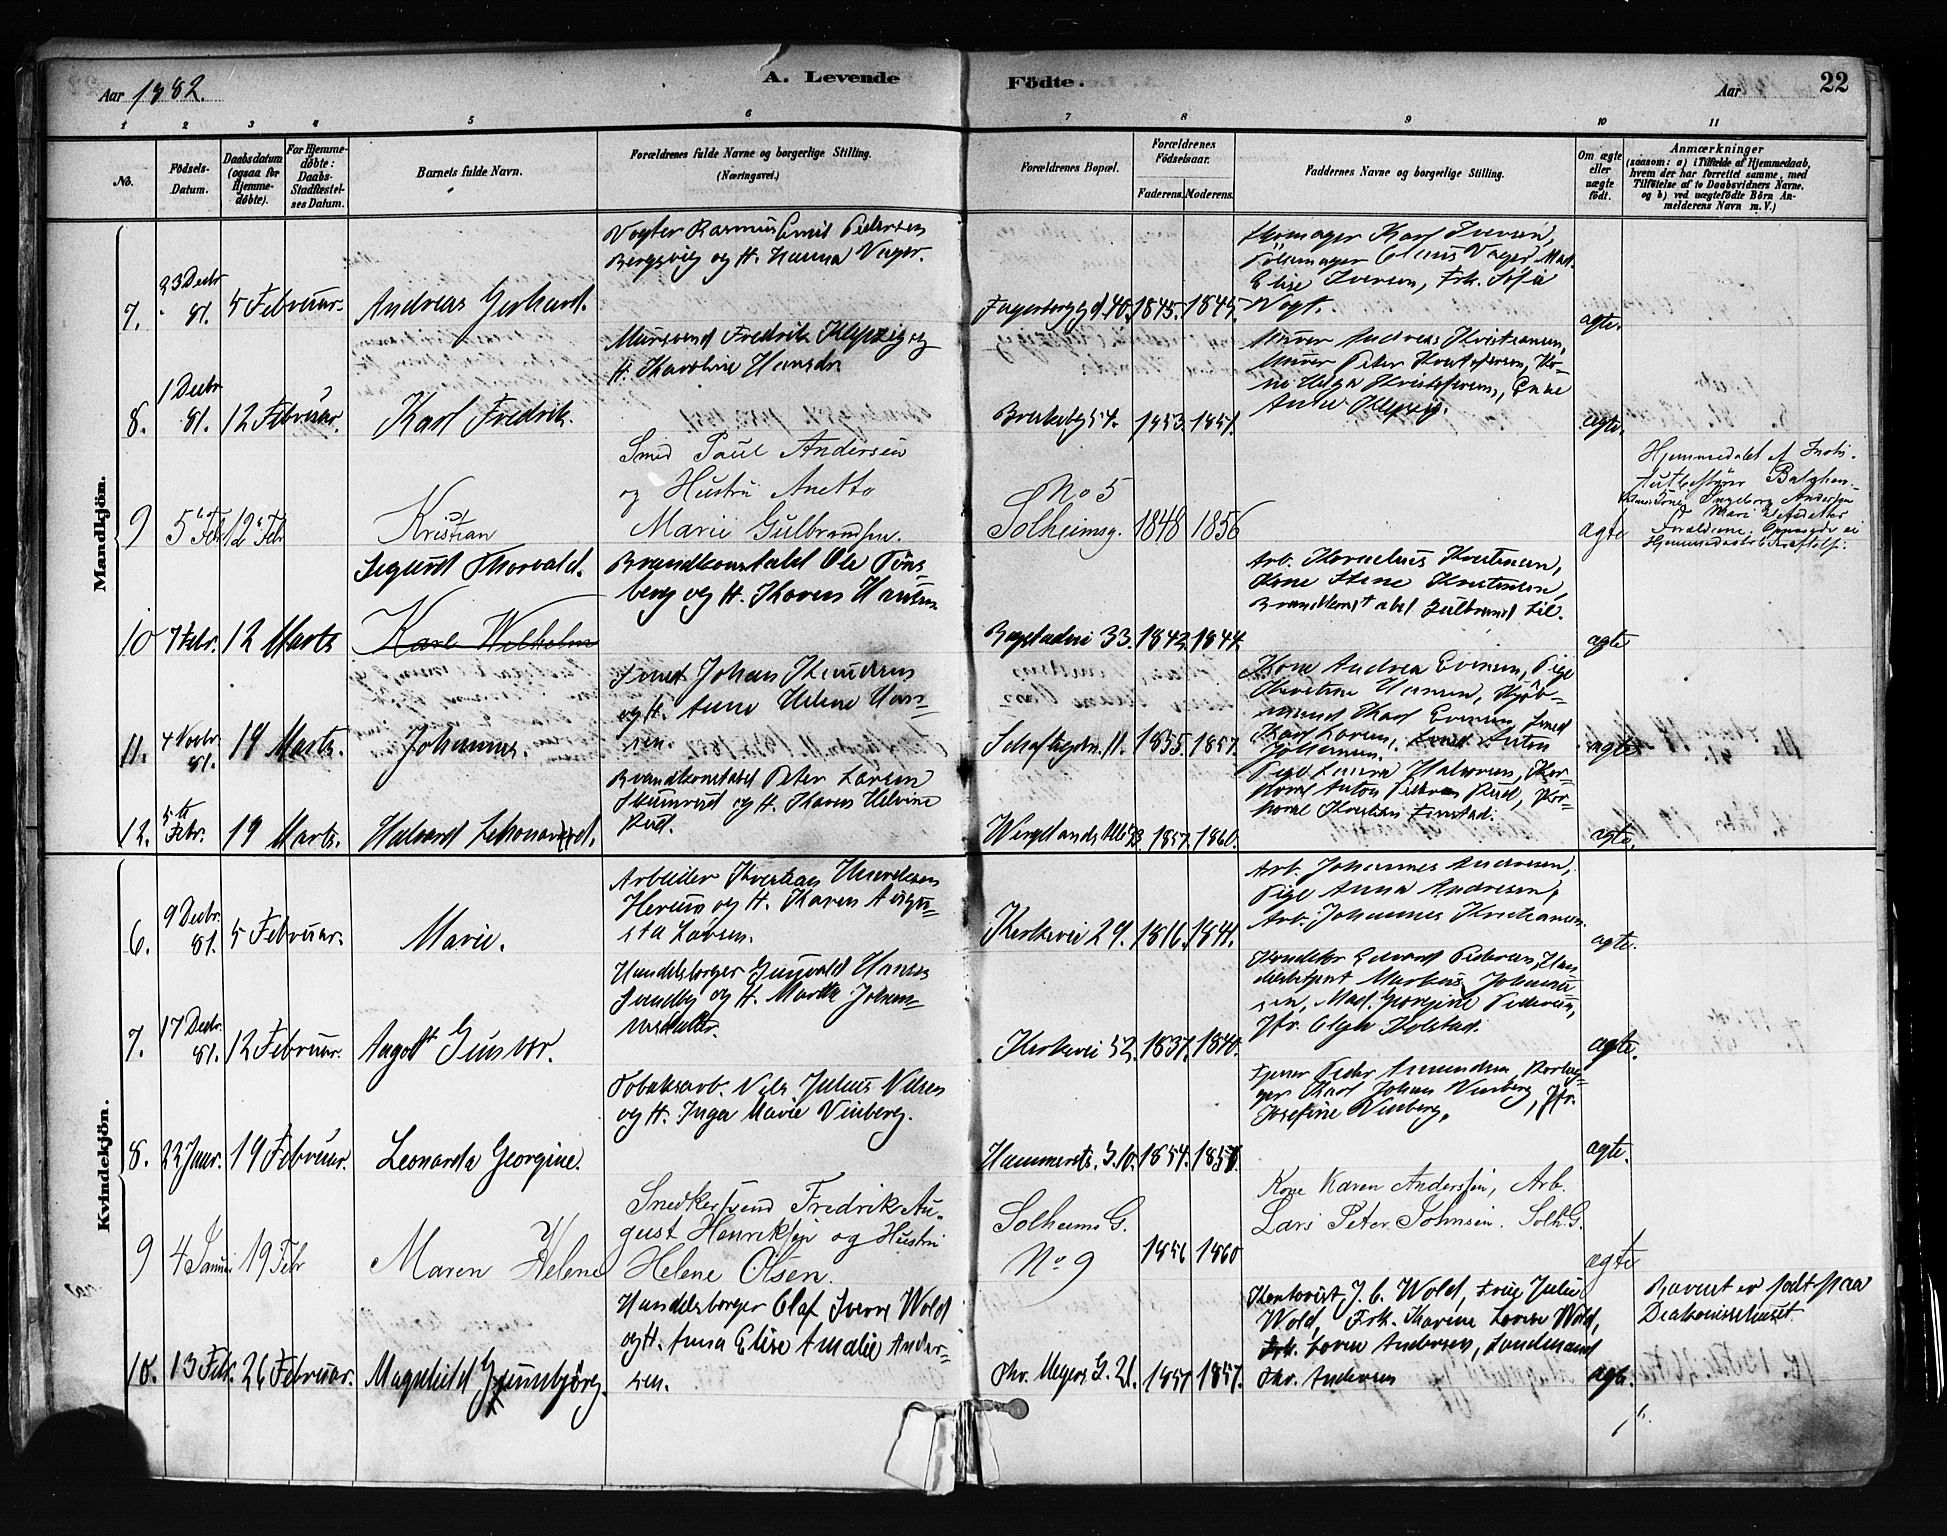 Aar 1882.
A. Levende
Födte.
Aar
22
1
2
3
4
5
6
7
8
9
10
11
No.
Födsels-
Datum.
Daabsdatum
(ogsaa for
Hjemme-
døbte).
For Hjemme-
døbte:
Daabs-
Stadfæstel-
ses Datum.
Barnets fulde Navn.
Forældrenes fulde Navne og borgerlige Stilling.
(Næringsvei.)
Forældrenes Bopæl.
Forældrenes
Födselsaar.
Faderens.
Moderens.
Faddernes Navne og borgerlige Stilling.
Om ægte
eller
uægte
födt.
Anmærkninger
(saasom: a) i Tilfælde af Hjemmedaab,
hvem der har forrettet samme, med
Tilföielse af to Daabsvidners Navne.
og b) ved uægtefödte Börn An-
melderens Navn m. V.)
Mandkjön.
7.
23 Decbr
81.
5 Februar.
Andreas Gerhard.
Vogter Rasmus Emil Pedersen
Bergsvig og H. Hanna Vager.
Fagerborggd. 40.
1845.
1845.
Skomager Karl Iversen,
Pølsemager Claus Vager, Mad.
Elise Iversen, Frk. Sofie
Vogt.
ægte.
8.
1 Decbr
81.
12 Februar.
Karl Fredrik.
Mursvend Fredrik Klepzig og
H. Karoline Hansdr
1853.
1851.
Murer Andreas Kristiansen,
Murer Peter Kristofersen, Ko-
ne Helga Kristofersen, Enke
Anne Klepzig.
ægte.
9
5te Febr
12te Febr
Kristian
Smed Paul Andersen
og Hustru Anette
Marie Gulbrandsen.
No 5
Solheimsg.
1848
1856
ægte
Hjemmedøbt af Insti-
Ingeborg Andersen
10
7 Febr.
12 Marts
Sigurd Thorvald.
Karl Wilhelm
Brandkonstabel Ole Töns-
berg og H. Karen Hansen
33.
1842.
1844.
Arb. Kornelius Kristiansen,
Kone Stine Kristiansen,
Brandkonstabel Gulbrand Lie.
ægte
11.
4 Novbr
81.
19 Marts.
Johannes.
Smed Johan Knudsen
og H. Anne Helene Han-
sen.
11.
1835.
1857.
Kone Andrea Evensen, Pige
Kristine Hansen, Kjöb-
mand Karl Evensen, Smed
Karl Larsen, Smed Anton
Johansen.
ægte
12.
5te
Febr.
19 Marts.
Halvard Lehonard.
Brandkonstabel Peter Larsen
og H. Karen Helvine
Rud.
1857.
1860.
Pige Laura Halvorsen, Kor-
poral Anton Pedersen Rud, Kor-
poral Kristian Finstad.
ægte.
Kvindekjön.
6.
9 Decbr.
81.
5 Februar.
Marie.
Arbeider Kristian
og H. Karen Augu-
sta Larsen.
Kirkevei 29.
1816.
1841.
Arb. Johannes Andresen,
Pige Anna Andresen,
Arb. Johannes Kristiansen.
ægte.
7.
17 Decbr.
81.
12 Februar.
Aagot Gunvor.
Handelsborger Gunvald Hansen
Sandby og H. Marthe Johan-
nesdatter.
Kirkevei 52.
1837.
1840.
Konditor Edvard Pedersen, Han-
delsbetjent Markus Johanne-
sen, Mad. Georgine Pedersen,
Jfr. Olga Holstad.
ægte.
8.
22 Janr.
19 Februar.
Leonarda Georgine.
Tobaksarb. Nils Julius Nilsen
og H. Inga Marie Vinberg.
Hammersts. G. 10.
1854.
Peder Amundsen,
Karl Johan Vinberg, Jfr.
Josefine Vinberg,
ægte.
9
4 Januar
19 Febr
Maren Helene
Snedkersvend Fredrik Au-
gust Henriksen og Hustru
Helene Olsen.
Solheims G.
No 9
1856
1860
Kone Karen Anderssen, Arb.
Lars Peter Johnsen. Solh. G.
ægte
10.
13 Febr.
26 Februar.
Magnhild Gunnbjörg.
Handelsborger Olaf Sverre Wold
og H. Anna Elise Amalie Ander-
sen.
Chr. Meyers G. 21.
1857
1857.
Kontorist J. C. Wold, Frue Julie
Wold, Frk. Karine Lovise Wold,
Frk. Lovise Andersen, Landmand
Chr. Andersen
ægte.
Barnet er født paa
Diakonissehuset.